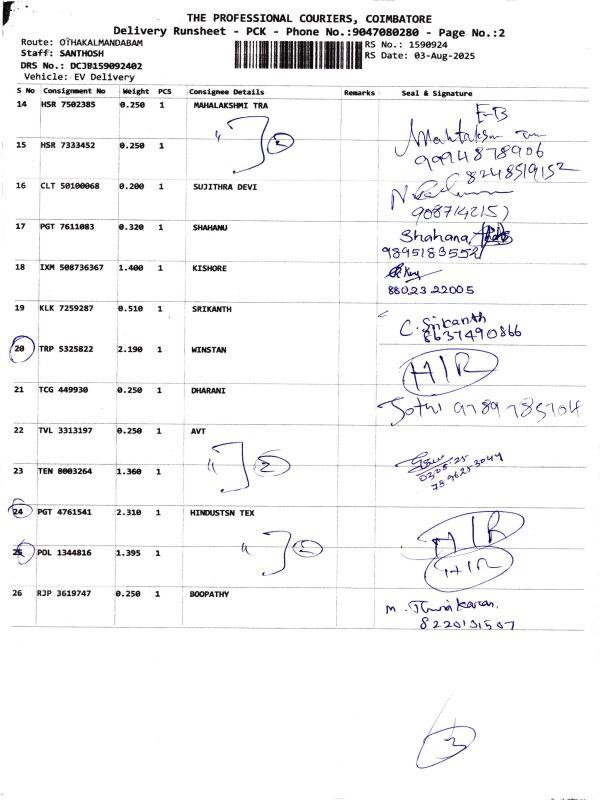 THE PROFESSIONAL COURIERS, COIMBATORE
Delivery Runsheet - PCK - Phone No.:9047080280 - Page No.:2
Route: OTHAKALMANDABAM
RS No.: 1590924
Staff: SANTHOSH
RS Date: 03-Aug-2025
DRS No.: DCJ0159092402
Vehicle: EV Delivery
S No Consignment No Weight PCS Consignee Details Remarks Seal & Signature
14 HSR 7502385 0.250 1 MAHALAKSHMI TRA
" ] 2
9994878906
15 HSR 7333452 0.250 1
8248519152
16 CLT 50100068 0.200 1 SUJITHRA DEVI
17 PGT 7611083 0.320 1 SHAHANU Shahana
9895183552
18 IXM 508736367 1.400 1 KISHORE
8802322005
19 KLK 7259287 0.510 1 SRIKANTH C. Srikanth
8637490866
20 TRP 5325822 2.190 1 WINSTAN H/R
21 TCG 449930 0.250 1 DHARANI Jothi 9789785704
22 TVL 3313197 0.250 1 AVT
" ] 2
7896253044
23 TEN 8003264 1.360 1
24 PGT 4761541 2.310 1 HINDUSTSN TEX H/R
" ] 2
25 POL 1344816 1.395 1 H/R
26 RJP 3619747 0.250 1 BOOPATHY
8220131507
3